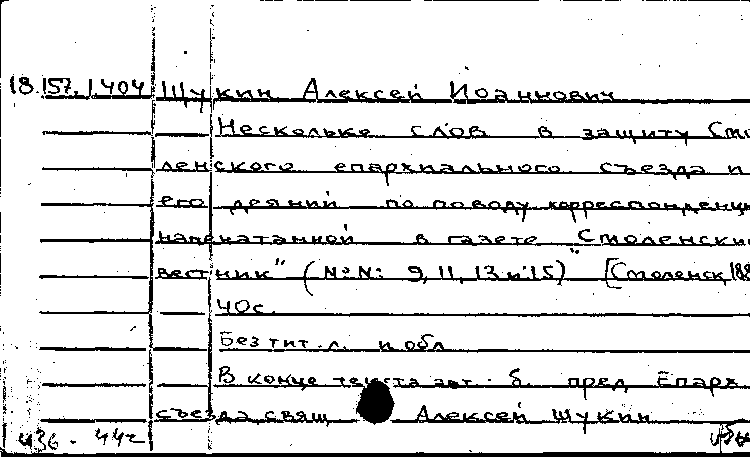 18.157.1.404 Щукин Алексей Иоаннович
Несколько слов в защиту Смо
ленского епархиального съезда и
его деяний по поводу корреспонденци
напечатанной в газете "Смоленский
вестник" (№№: 9, 11, 13 и 15) [Смоленск, 188
40с.
Без тит. л. и обл
В конце текста авт.: б. пред. Епарх.
съезда, свящ Алексей Щукин
436 - 442